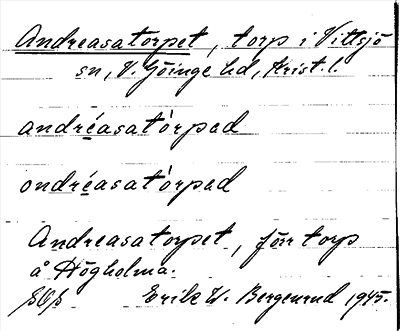 Andreasatorpet, torp i Vittsjö
sn, V. Göinge hd, Krist. l.
andréasatòrpad
ondréasatòrpad
Andreasatorpet, förr torp
å Högholma.
Erik W. Bergenrud 1945.